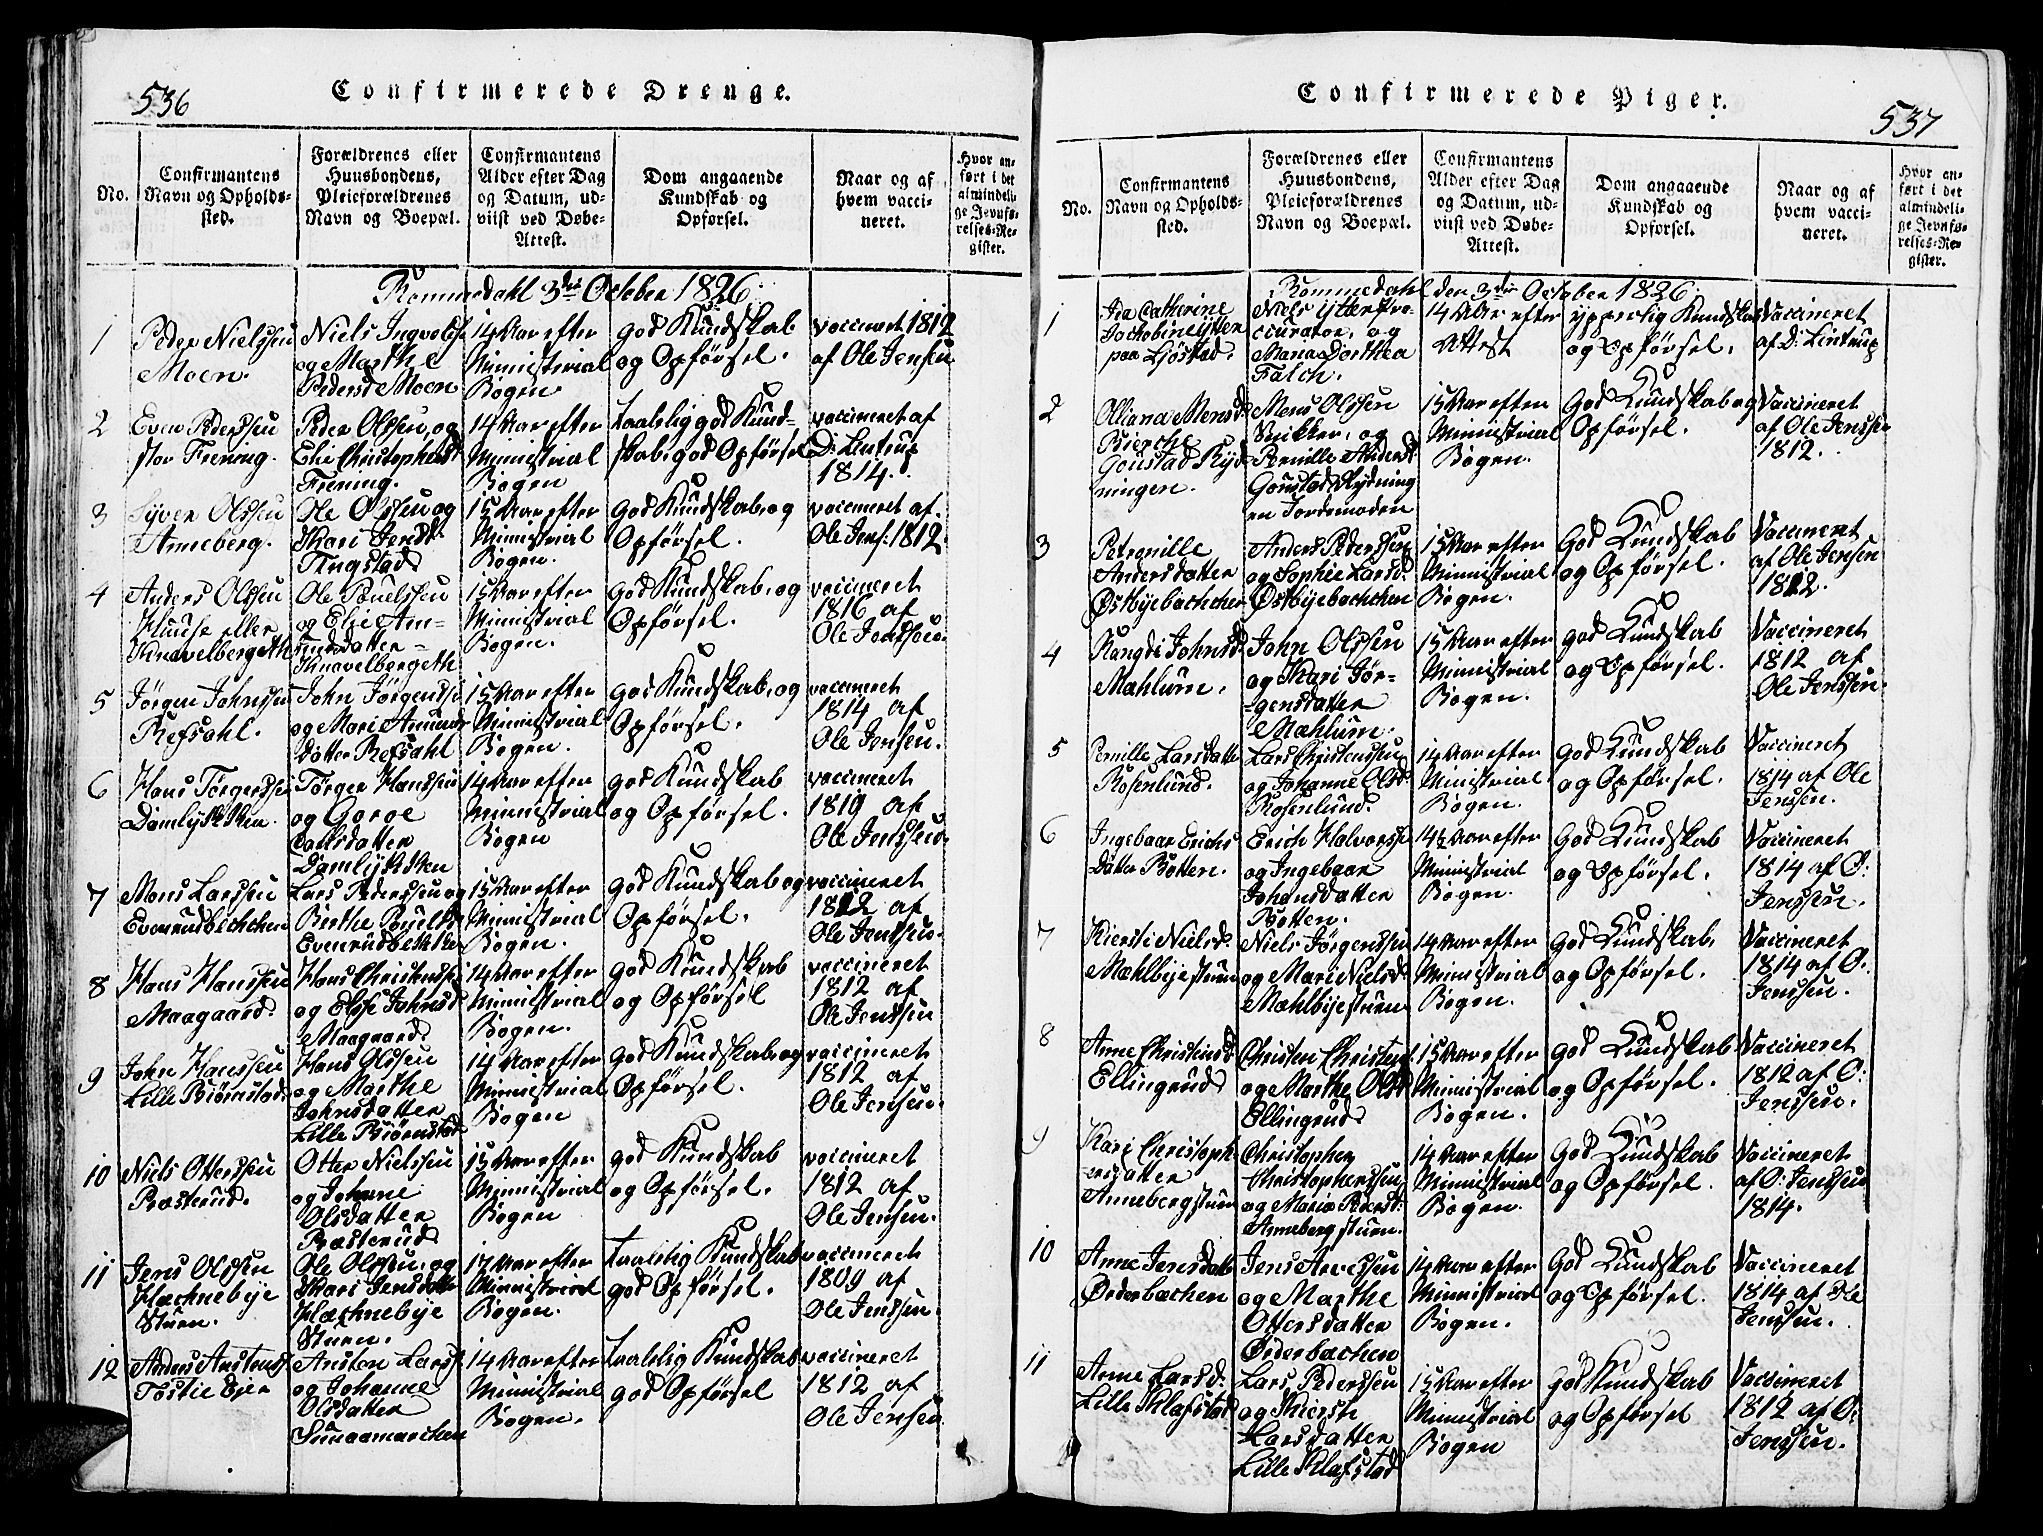 536
Confirmerede Drenge.
No.
Confirmantens
Navn og Opholds-
sted.
Forældrenes eller
Huusbondens,
Pleieforældrenes
Navn og Boepæl.
Confirmantens
Alder efter Dag
og Datum, ud-
viist ved Døbe-
Attest.
Dom angaaende
Kundskab og
Opførsel.
Naar og af
hvem vacci-
neret.
Hvor an-
ført i det
almindeli-
ge Jevnfø-
relses-Re-
gister.
Rommedahl 3die October 1826
1
Peder Nielssen
Moen.
Niels Ingvoldss
og Marthe
Pedersd Moen
14 Aar efter
Ministrial
Bogen.
god Kundskab
og Opførsel.
vaccineret 1812
af Ole Jensen
2
Even Pederssen
stor Frening.
Peder Olssen og
Elie Christophersd
Frening.
14 Aar efter
Ministrial
Bogen
taalelig god Kund-
skab, god Opførsel
vaccineret af
D: Lintrup
1814.
3
Syver Olssen
Anneberg.
Ole Olssen og
Kari Jensd
Tingstad
15 Aar efter
Ministrial
Bogen.
god Kundskab, og
Opførsel.
vaccineret af.
Ole Jens: 1812.
4
Anders Olssen
Huuse eller
Knavelbergeth
Ole Pouelssen
og Elie Am-
undsdatter
Knavelbergeth
15 Aar efter
Ministrial
Bogen.
god Kundskab, og
Opførsel.
vaccineret
1816 af
Ole Jenssen.
5
Jörgen Johnssen
Refsahl.
John Jörgenss
og Mari Amunds
datter Refsahl
15 Aar efter
Ministrial
Bogen.
god Kundskab, og
Opførsel.
vaccineret
1814 af
Ole Jensen.
6
Hans Törgerssen
Damlykken.
Törger Hanssen
og Goroe
datter
Damlykken
14 Aar efter
Ministrial
Bogen
god Kundskab
og Opførsel.
vaccineret
1819 af
Ole Jenssen.
7
Mons Larssen
Evenrudbechchen
Lars Pederssen og
Berthe Pouelsd
Evenrudbekken
15 Aar efter
Ministrial
Bogen.
god Kundskab og
Opførsel.
vaccineret
1812 af
Ole Jenssen.
8
Hans Hanssen
Maagaard.
Hans Christenss
og Elsse Johnsd
Maagaard
14 Aar efter
Ministrial
Bogen.
god Kundskab
og Opførsel
vaccineret
1812 af
Ole Jenssen
9
John Hanssen
Lille Biörnstad.
Hans Olssen
og Marthe
Johnsdatter
Lille Biörnstad
14 Aar efter
Ministrial
Bogen
god Kundskab, og
Opførsel.
vaccineret
1812 af
Ole Jensen.
10
Niels Otterssen
Bæsterud.
Otter Nielssen
og Johanne
Olsdatter
Bæsterud
15 Aar efter
Ministrial
Bogen
god Kundskab
og Opførsel.
vaccineret
1812 af
Ole Jensen.
11
Jens Olssen
Hachnebye
Stuen.
Ole Olssen, og
Kari Jensdatter
Hachnebye
Stuen.
17 Aar efter
Ministrial
Bogen.
taalelig Kundskab
god Opførsel.
vaccineret
1809 af
Ole Jenssen.
12
Anders Anstenss
Tostie Eier
Ansten Larss
og Johanne
Olsdatter
14 Aar efter
Ministrial
Bogen.
taalelig Kundskab
god Opførsel
vaccineret
1812 af
Ole Jensen
Confirmerede Piger.
537
No.
Confirmantens
Navn og Opholds-
sted.
Forældrenes eller
Huusbondens,
Pleieforældrenes
Navn og Boepæl.
Confirmantens
Alder efter Dag
og Datum, ud-
viist ved Døbe-
Attest.
Dom angaaende
Kundskab og
Opførsel.
Naar og af
hvem vacci-
neret.
Hvor an-
ført i det
almindeli-
ge Jevnfø-
relses-Re-
gister.
Rommedahl den 3die October 1826.
1
Ida Catherine
Jachobine Ytter
paa Ljöstad.
Niels Ytter Pro-
curator, og
Maria Dorthea
Falch.
14 Aar efter
Attest
ypperlig Kundskab
og Opførsel.
Vaccineret
af D: Lintrup
2
Olliana Mensd
Bierche
Gaustad Ryd-
ningen.
Mens Olssen
Snikker, og
Pernille Andersd
Gaustad Rydning
en Jordemoder
15 Aar efter
Ministrial
Bogen.
God Kundskab og
Opførsel.
Vaccineret
af Ole Jenssen
1812.
3
Petronille
Andersdatter
Østbyebachchen
Anders Pederssen
og Sophie Larsd.
Østbyebachchen
15 Aar efter
Ministrial
Bogen.
God Kundskab
og Opførsel.
Vaccineret
af Ole Jensen
1812.
4
Rangdi Johnsd.
Mæhlum.
John Olssen
og Kari Jör-
gensdatter
Mæhlum.
15 Aar efter
Ministrial
Bogen.
god Kundskab
og Opførsel.
Vaccineret
1812 af
Ole Jenssen.
5
Pernille Larsdatter
Rosenlund.
Lars Christenssen
og Johanne Olsd
Rosenlund.
14 Aar efter
Ministrial
Bogen.
god Kundskab
og Opførsel.
Vaccineret
1814 af Ole
Jenssen.
6
Ingebaar Erichs
datter Botten.
Erich Halvorss
og Ingebaar
Johansdatter
Botten.
14½ Aar efter
Ministrial
Bogen.
God Kundskab
og Opførsel.
Vaccineret
1814 af O:
Jenssen.
7
Kiersti Nielsd.
Mæhlbyestuen
Niels Jörgenssen
og Mari Nielsd.
Mæhlbyestuen
14 Aar efter
Ministrial
Bogen.
God Kundskab,
og Opførsel.
Vaccineret
1814 af O:
Jenssen.
8
Anne Christensd.
Ellingrud
Christen Christens
og Marthe Olsd
Ellingrud
15 Aar efter
Ministrial
Bogen.
god Kundskab
og Opførsel.
Vaccineret
1812 af O:
Jenssen.
9
Kari Christoph
ersdatter
Annebergstuen
Christopher
Christopherssen
og Maria Pedersd:
Anneberg stuen.
14 Aar efter
Ministrial
Bogen.
God Kundskab
og Opførsel.
Vaccineret
af O: Jenssen
1814.
10
Anne Jensdatt
Ørderbachen
Jens Arvessen
og Marthe
Ottersdatter
Ørderbachen
14 Aar efter
Ministrial
Bogen.
God Kundskab
og Opførsel.
Vaccineret
1814 af Ole
Jenssen.
11
Anne Larsd:
Lille Klafstad
Lars Pederssen
og Kiersti
Larsdatter
Lille Klafstad
15 Aar efter
Ministrial
Bogen
god Kundskab
og Opførsel
Vaccineret
1812 af O:
Jenssen.